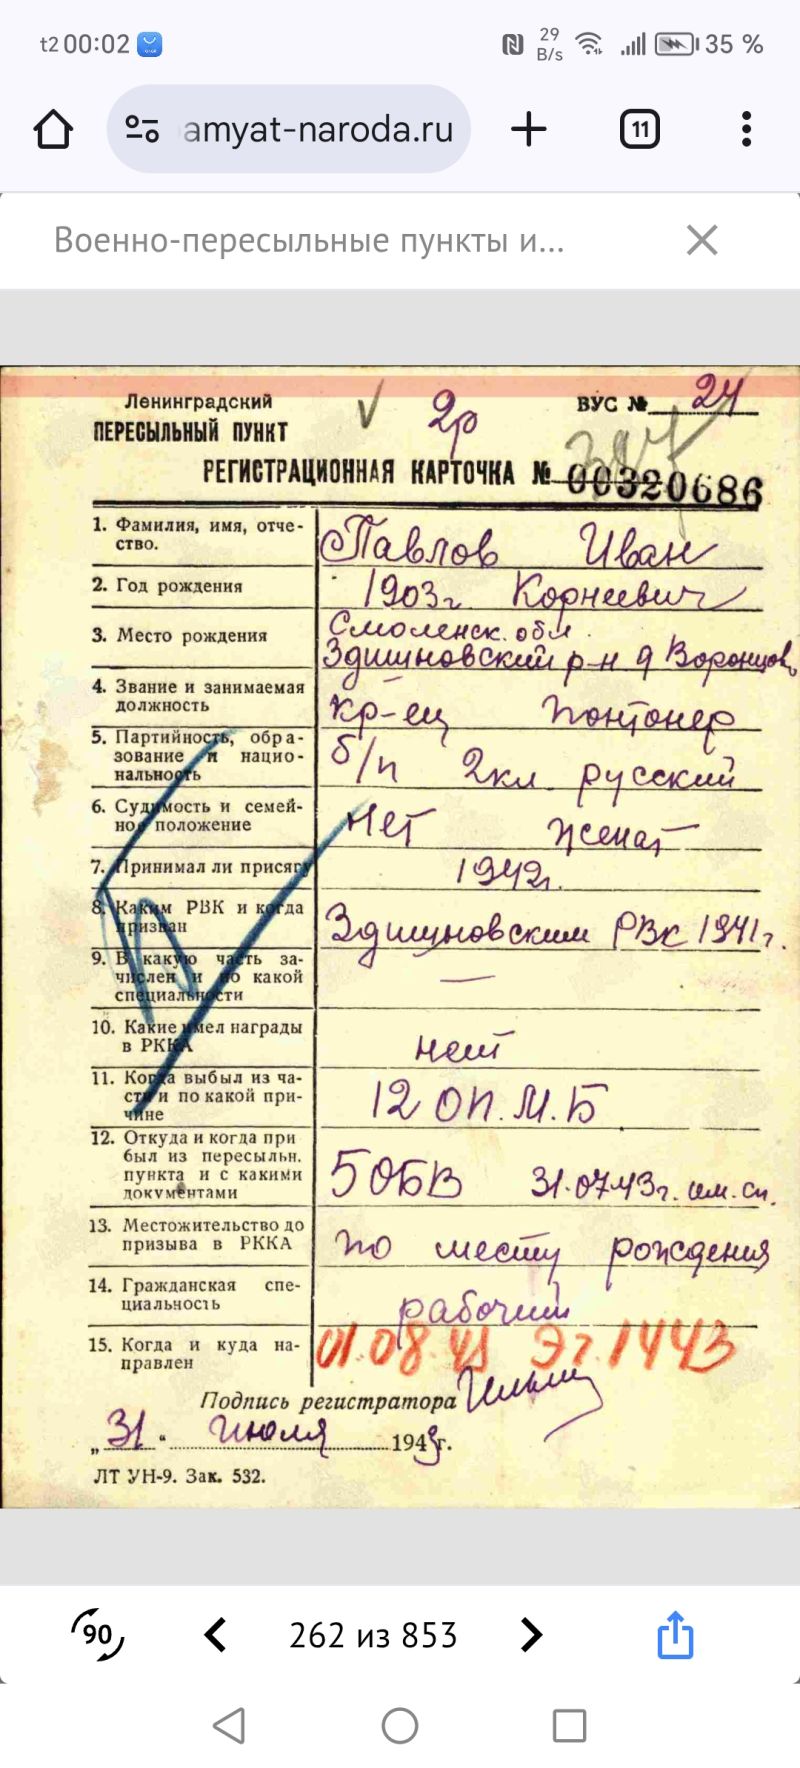 t2 00:02 29 B/s 35 %
amyat-naroda.ru 11
Военно-пересыльные пункты и...
Ленинградский
ПЕРЕСЫЛЬНЫЙ ПУНКТ
2р
ВУС № 24
РЕГИСТРАЦИОННАЯ КАРТОЧКА № 00320686
1. Фамилия, имя, отче-
ство.
Павлов Иван
2. Год рождения 1903г. Корнеевич
3. Место рождения
Смоленск. обл.
Здишновский р-н д Воронцов
4. Звание и занимаемая
должность
кр-ец понтонер
5. Партийность, обра-
зование и нацио-
нальность
б/п 2кл. русский
6. Судимость и семей-
ное положение
нет женат
7. Принимал ли присягу 1942г.
8. Каким РВК и когда
призван
Здишновским РВК 1941г.
9. В какую часть за-
числен и по какой
специальности
—
10. Какие имел награды
в РККА
нет
11. Когда выбыл из ча-
сти и по какой при-
чине
12 ОП.М.Б
12. Откуда и когда при
был из пересыльн.
пункта и с какими
документами
5 ОБВ 31.07.43г. им.сп.
13. Местожительство до
призыва в РККА
по месту рождения
14. Гражданская спе-
циальность
рабочий
15. Когда и куда на-
правлен
01.08.43 Эт.1443
Подпись регистратора
„31“ июля 1943г.
ЛТ УН-9. Зак. 532.
90 262 из 853